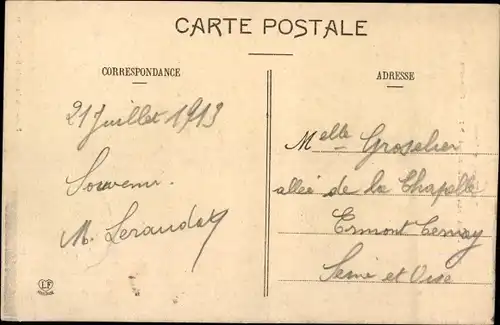 CARTE POSTALE
CORRESPONDANCE
21 Juillet 1913
Souvenir.
M. Leraudat
ADRESSE
Melle Groselier
allée de la Chapelle
Ermont Cernay
Seine et Oise
LF